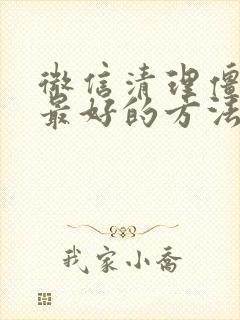 微信清理僵
最好的方法
我家小乔